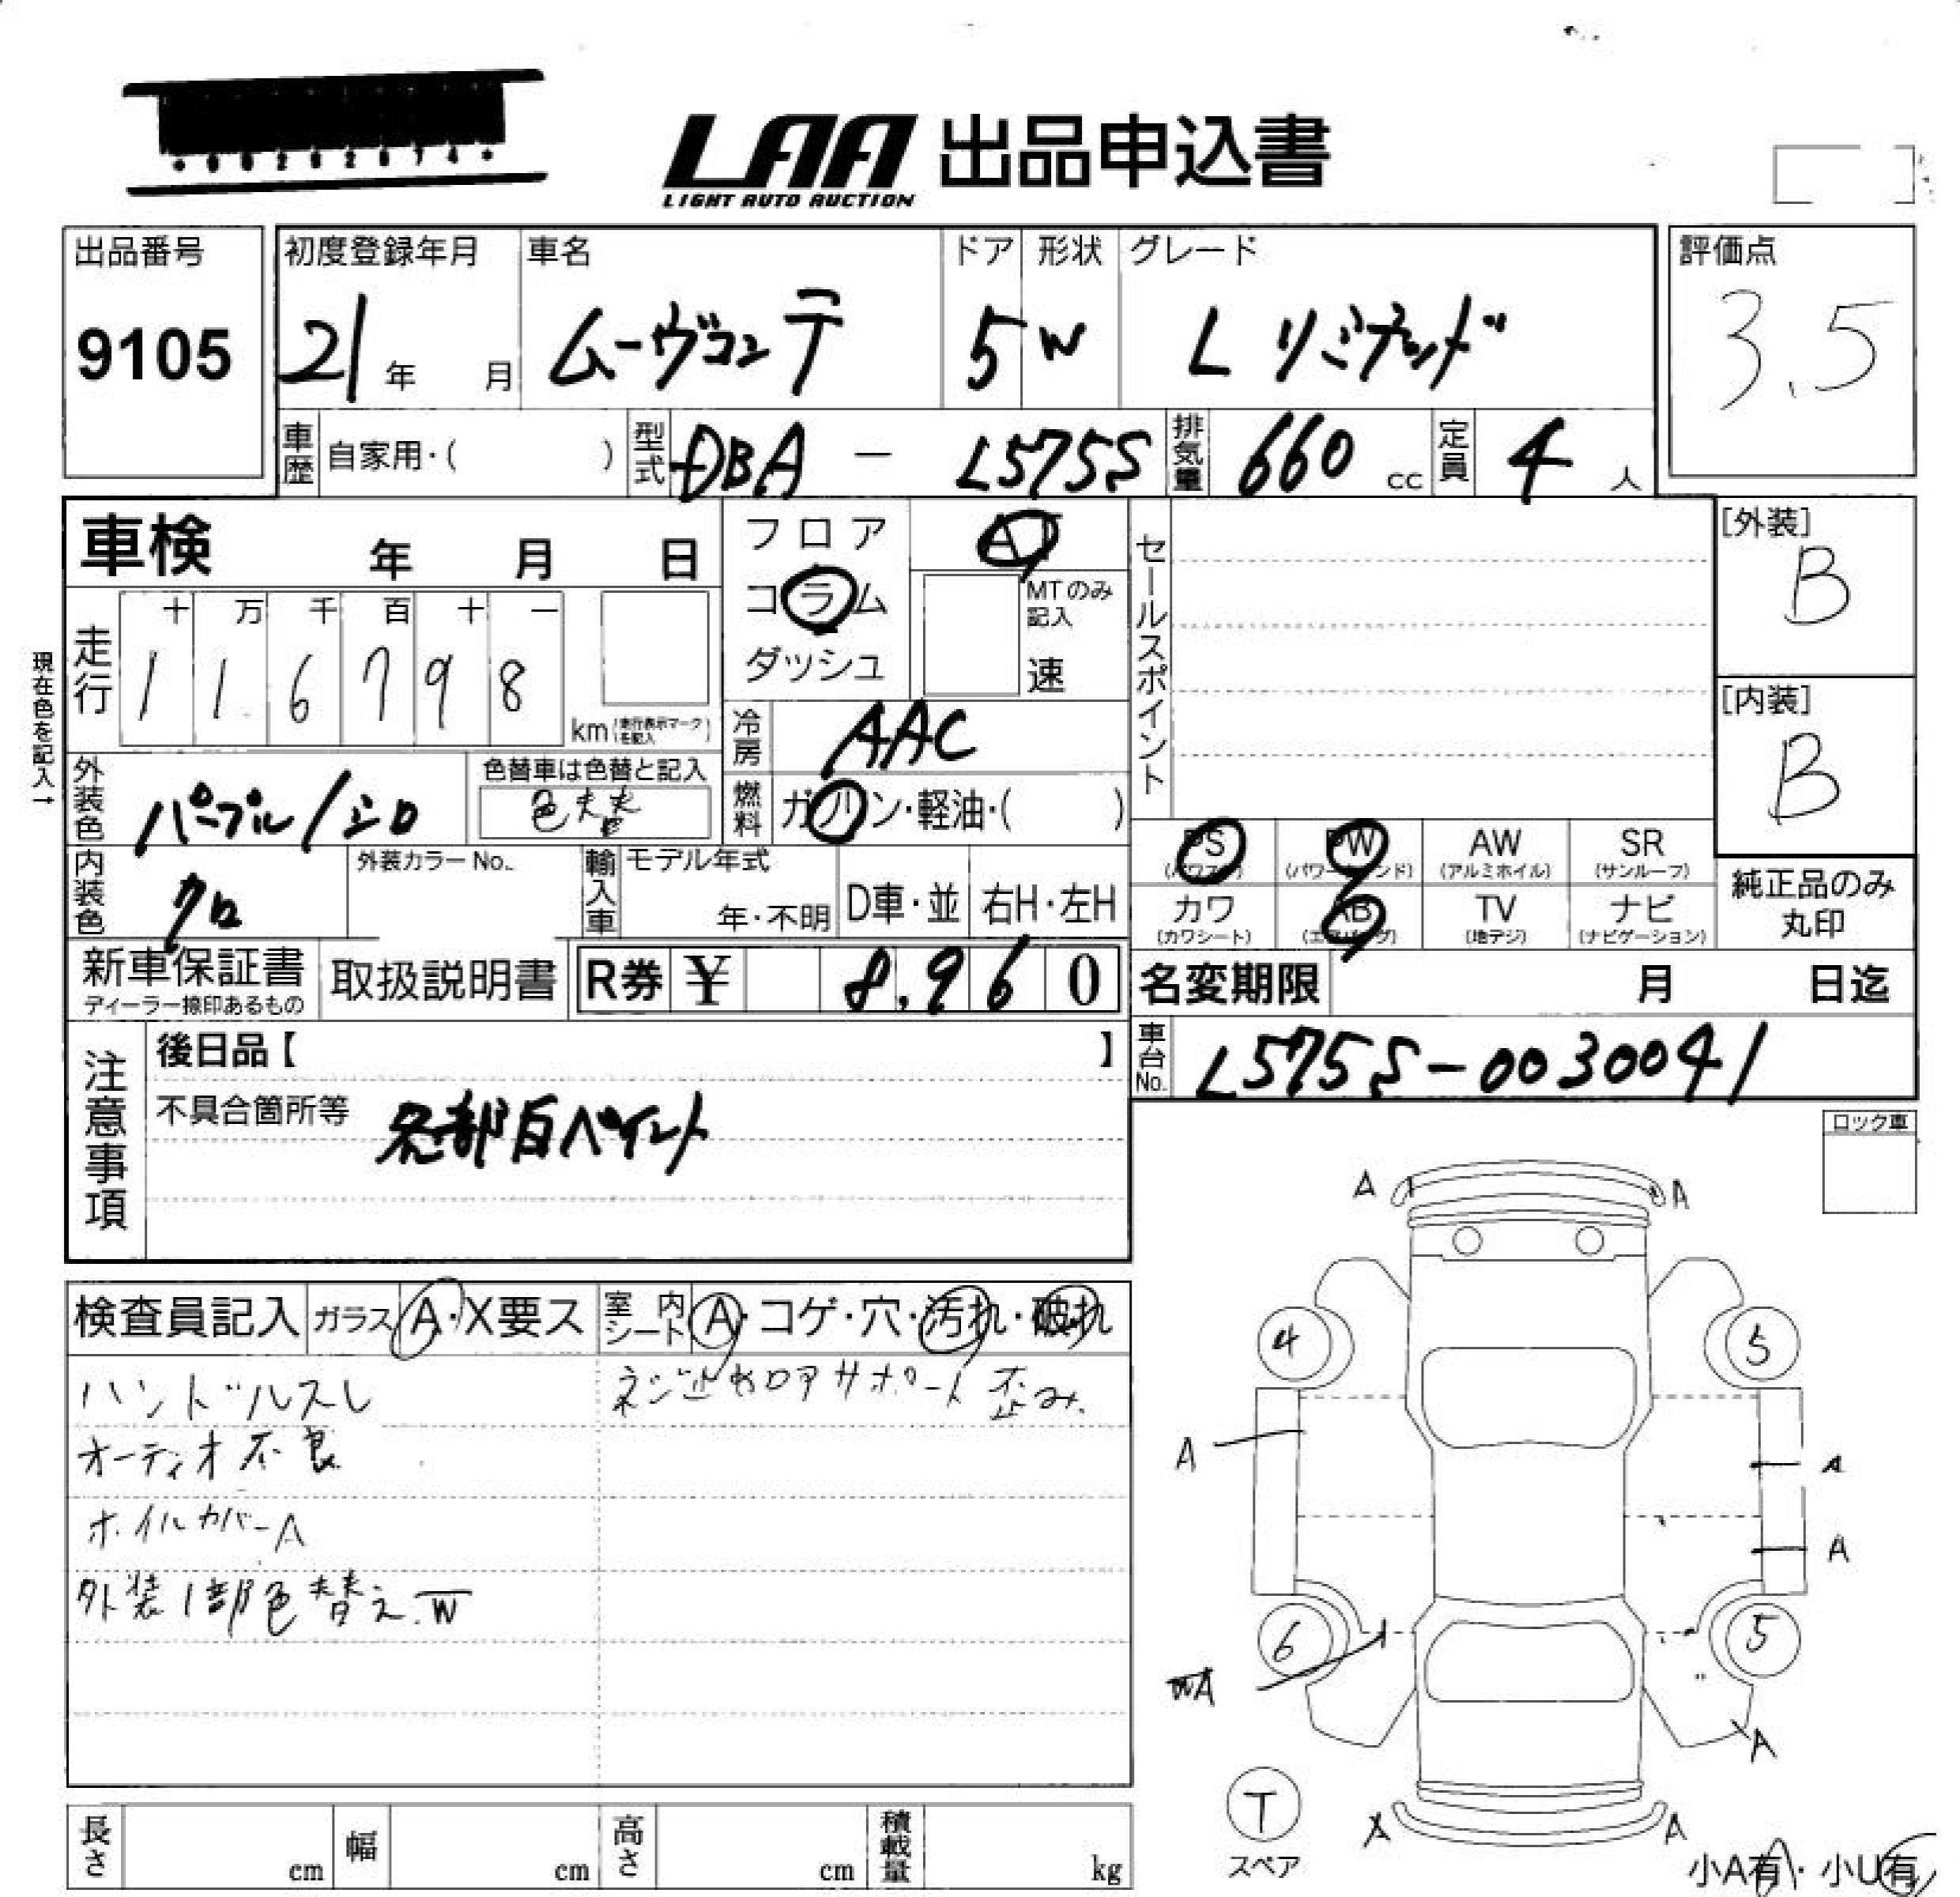 LAA 出品申込書
LIGHT AUTO AUCTION
出品番号
9105
初度登録年月
21年 月
車名
ムーヴコンテ
ドア
5
形状
W
グレード
L リミテッド
評価点
3.5
車歴 自家用・( )
型式 DBA - L575S
排気量 660 cc
定員 4 人
車検 年 月 日
フロア
コラム
ダッシュ
AT
MTのみ記入
速
セールスポイント
[外装]
B
[内装]
B
現在色を記入→
走行
十 万 千 百 十 一
1 1 6 7 9 8
km (走行表示マークを記入)
冷房 AAC
外装色 パープル/シロ
色替車は色替と記入
色替
燃料 ガソリン・軽油・( )
内装色 クロ
外装カラーNo.
輸入車 モデル年式
年・不明 D車・並 右H・左H
PS (パワステ)
PW (パワーウィンド)
AW (アルミホイル)
SR (サンルーフ)
カワ (カワシート)
AB (エアバッグ)
TV (地デジ)
ナビ (ナビゲーション)
純正品のみ
丸印
新車保証書
ディーラー捺印あるもの
取扱説明書
R券 ¥ 8,960
名変期限 月 日迄
車台No. L575S-0030041
注意事項
後日品【 】
不具合箇所等 各部白ペイント
ロック車
検査員記入 ガラス A・X要ス
室内シート A・コゲ・穴・汚れ・破れ
ハンドルスレ
オーディオ不良
ホイルカバーA
外装1部色替え.W
ネジ止めロアサポート 歪み.
A A
4 5
A A
A
6 5
WA
A
T
スペア
A A
小A有・小U有
長さ cm
幅 cm
高さ cm
積載量 kg